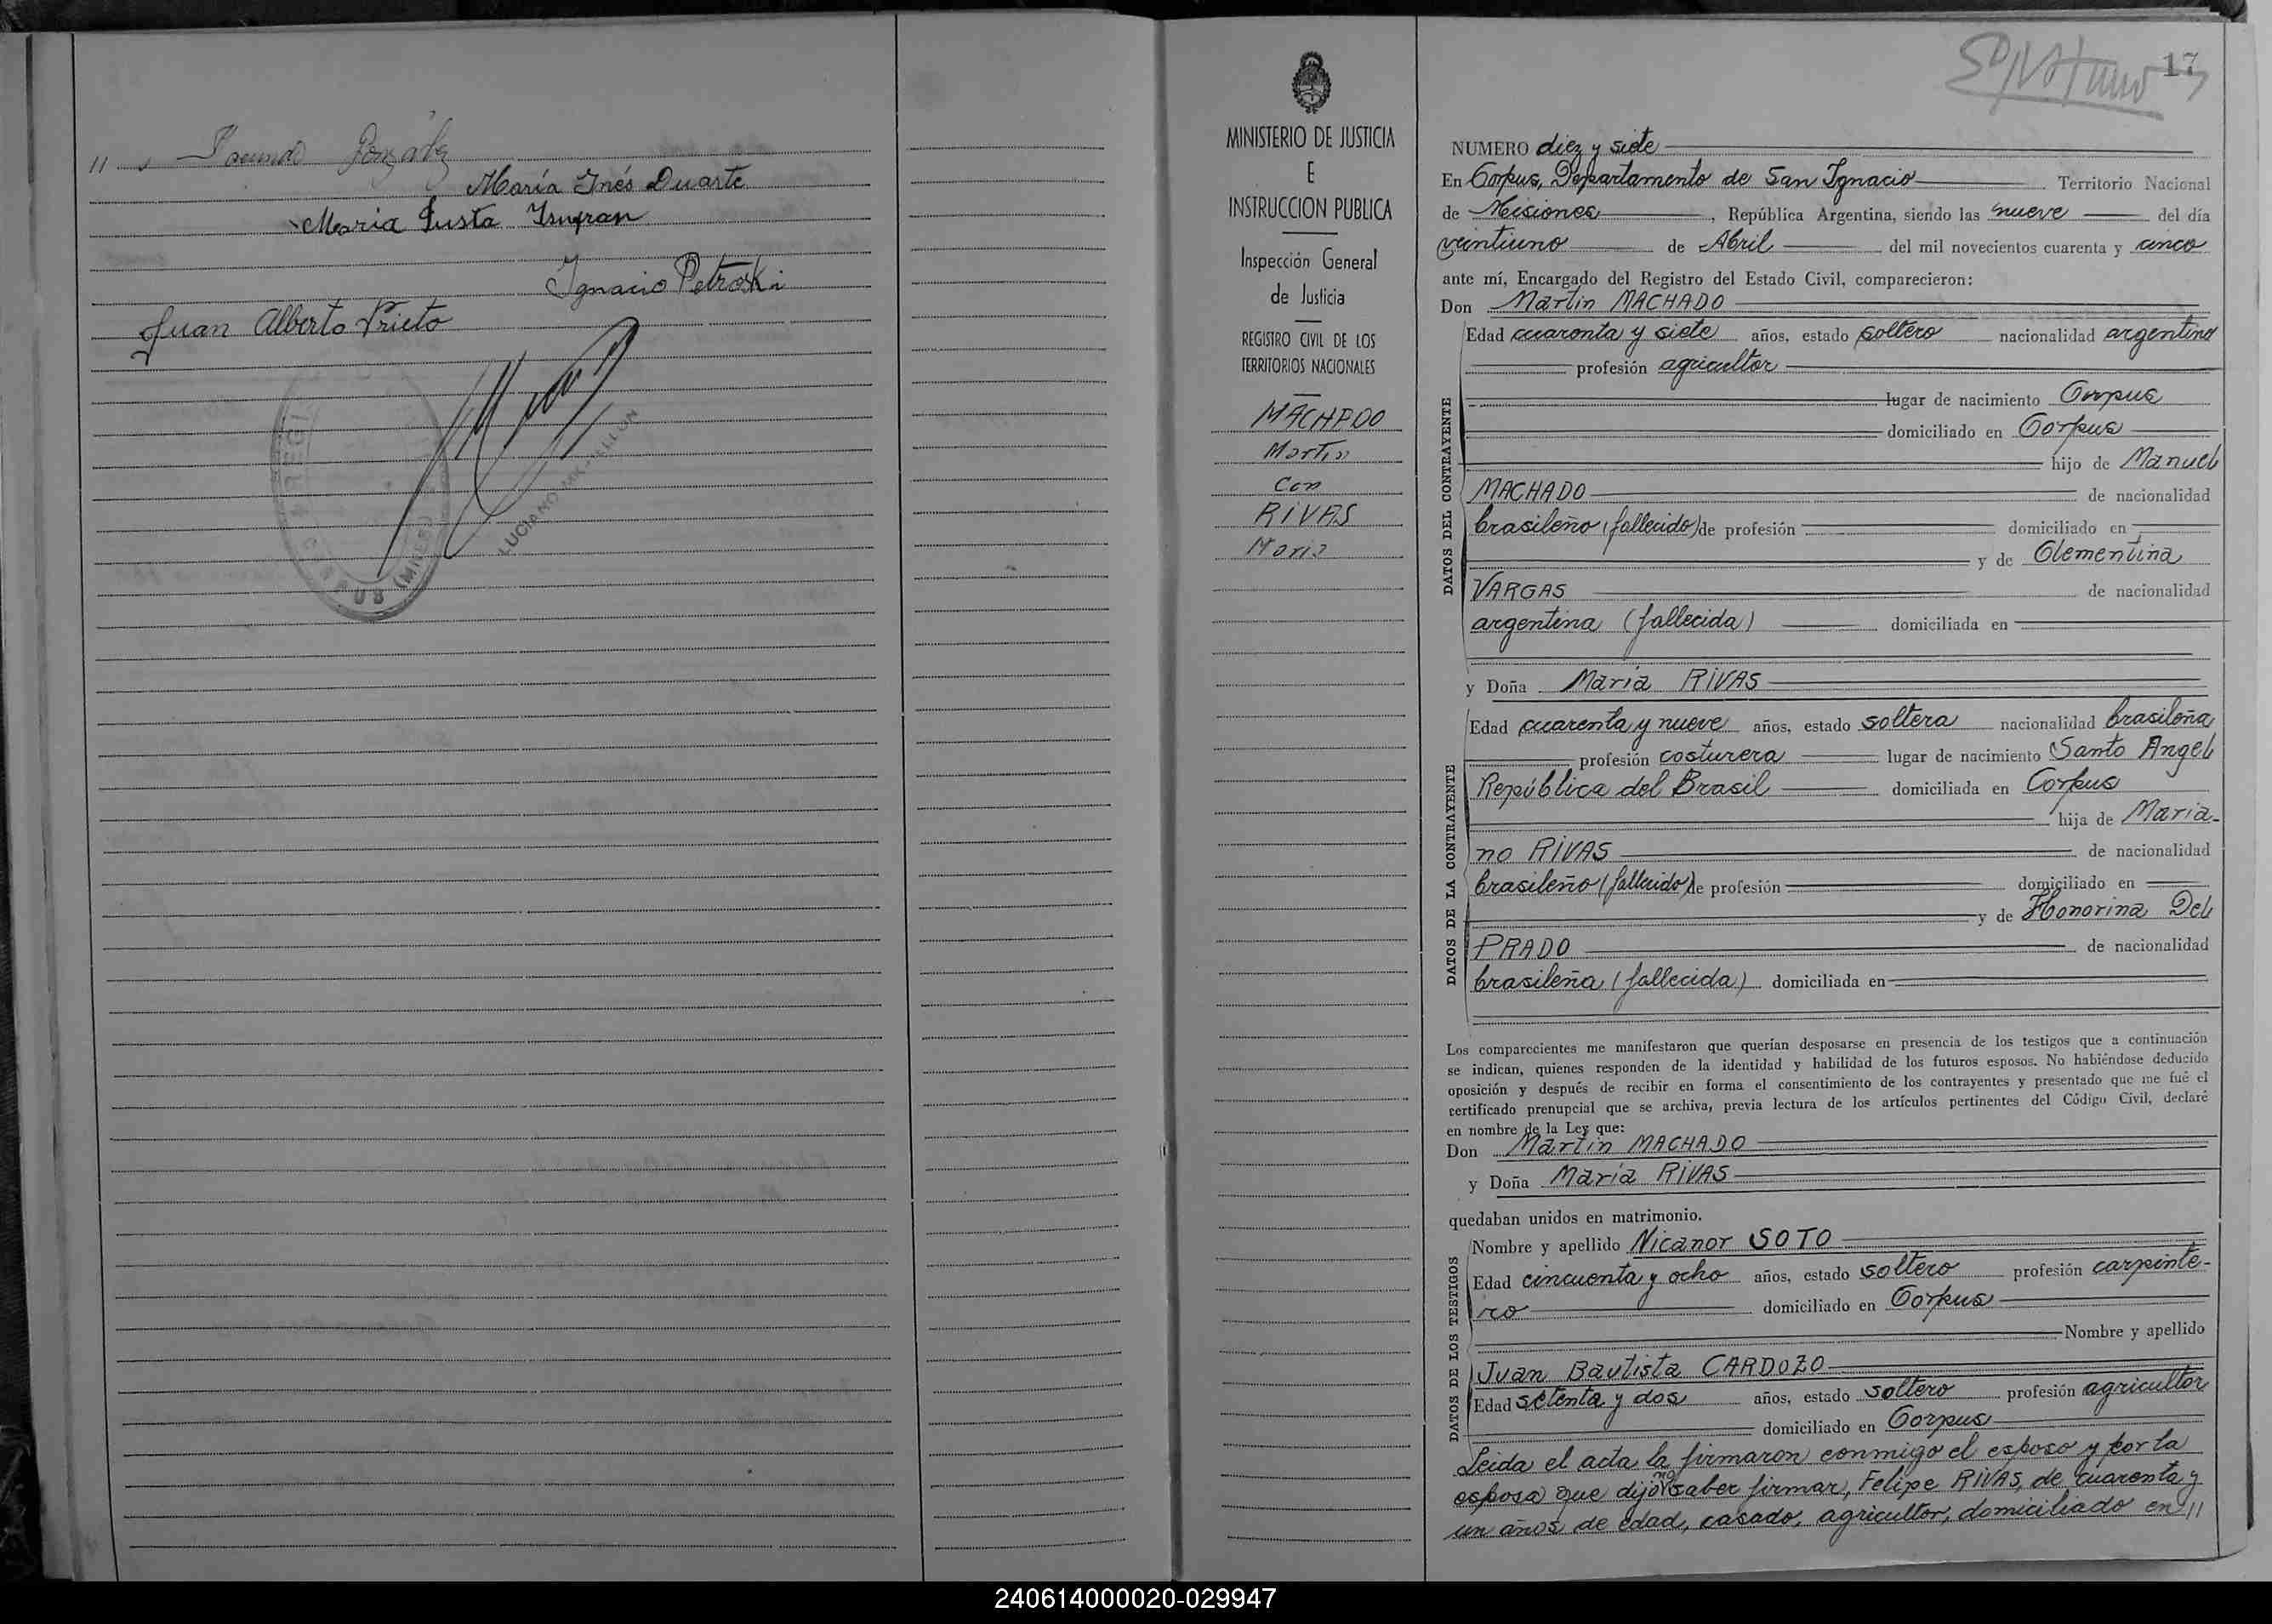 11
González
María Inés Duarte
María Justa
Ignacio Petroski
Juan Alberto Prieto
LUCIANO
MINISTERIO DE JUSTICIA
E
INSTRUCCION PUBLICA
Inspección General
de Justicia
REGISTRO CIVIL DE LOS
TERRITORIOS NACIONALES
MACHADO
Martín
Con
RIVAS
María
17
NUMERO diez y siete
En Corpus, Departamento de San Ignacio Territorio Nacional
de Misiones, República Argentina, siendo las nueve del día
veintiuno de Abril del mil novecientos cuarenta y cinco
ante mí, Encargado del Registro del Estado Civil, comparecieron:
Don Martín MACHADO
DATOS DEL CONTRAYENTE
Edad cuarenta y siete años, estado soltero nacionalidad argentino
profesión agricultor
lugar de nacimiento Corpus
domiciliado en Corpus
hijo de Manuel
MACHADO de nacionalidad
brasileño (fallecido) de profesión domiciliado en
y de Clementina
VARGAS de nacionalidad
argentina (fallecida) domiciliada en
y Doña María RIVAS
DATOS DE LA CONTRAYENTE
Edad cuarenta y nueve años, estado soltera nacionalidad brasileña
profesión costurera lugar de nacimiento Santo Angel
República del Brasil domiciliada en Corpus
hija de Maria-
no RIVAS de nacionalidad
brasileño (fallecido) de profesión domiciliado en
y de Honorina Del
PRADO de nacionalidad
brasileña (fallecida) domiciliada en
Los comparecientes me manifestaron que querían desposarse en presencia de los testigos que a continuación
se indican, quienes responden de la identidad y habilidad de los futuros esposos. No habiéndose deducido
oposición y después de recibir en forma el consentimiento de los contrayentes y presentado que me fué el
certificado prenupcial que se archiva, previa lectura de los artículos pertinentes del Código Civil, declaré
en nombre de la Ley que:
Don Martín MACHADO
y Doña María RIVAS
quedaban unidos en matrimonio.
DATOS DE LOS TESTIGOS
Nombre y apellido Nicanor SOTO
Edad cincuenta y ocho años, estado soltero profesión carpinte-
ro domiciliado en Corpus
Nombre y apellido
Juan Bautista CARDOZO
Edad setenta y dos años, estado soltero profesión agricultor
domiciliado en Corpus
Leida el acta la firmaron conmigo el esposo y por la
esposa que dijo no saber firmar, Felipe RIVAS, de cuarenta y
un años de edad, casado, agricultor, domiciliado en 11
240614000020-029947